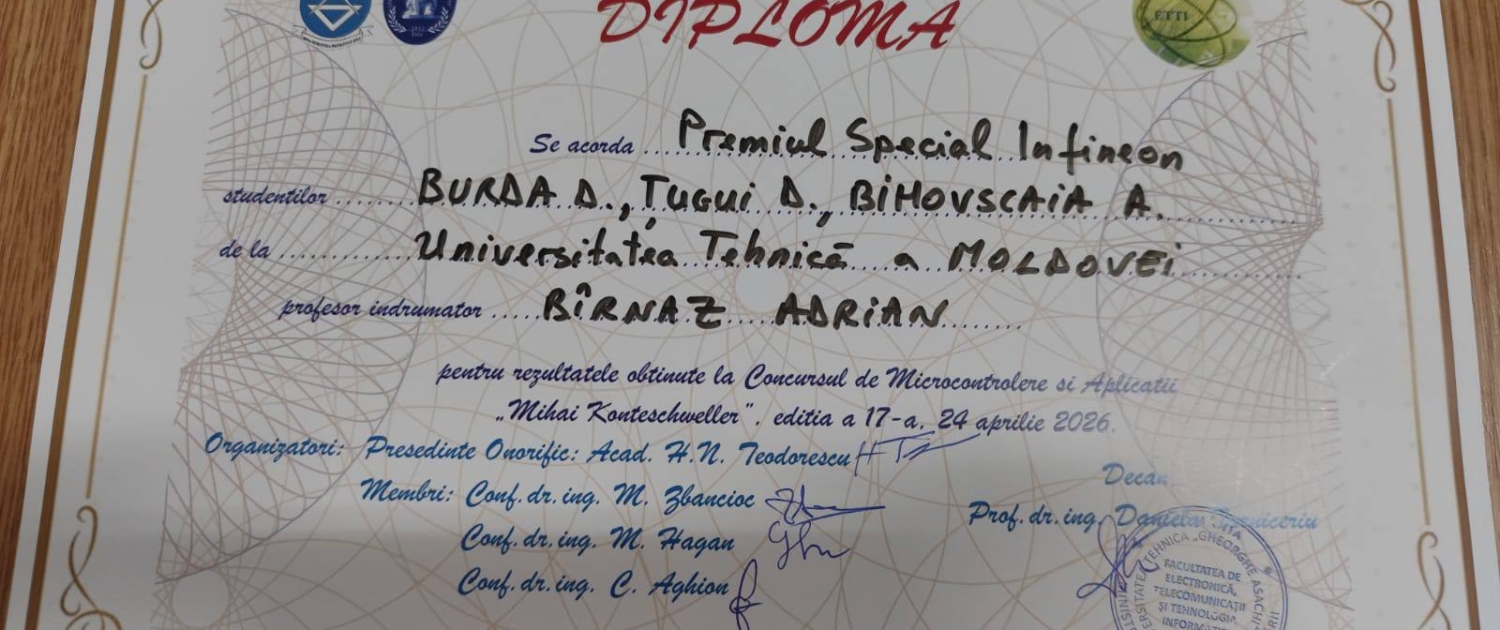 DIPLOMA
ETTI
Se acorda ... Premiul Special Infineon
studentilor ....... BURDA D., ȚUGUI D., BIHOVSCAIA A.
de la ............ Universitatea Tehnică a MOLDOVEI
profesor indrumator ..... BÎRNAZ ADRIAN .......
pentru rezultatele obtinute la Concursul de Microcontrolere si Aplicatii
„Mihai Konteschweller”, editia a 17-a, 24 aprilie 2026.
Organizatori: Presedinte Onorific: Acad. H.N. Teodorescu
Membri: Conf.dr.ing. M. Zbancioc
Conf.dr.ing. M. Hagan
Conf.dr.ing. C. Aghion
Decan
Prof.dr.ing. Daniela
TEHNICA „GHEORGHE ASACHI
FACULTATEA DE
ELECTRONICĂ,
TELECOMUNICAȚII
ȘI TEHNOLOGIA